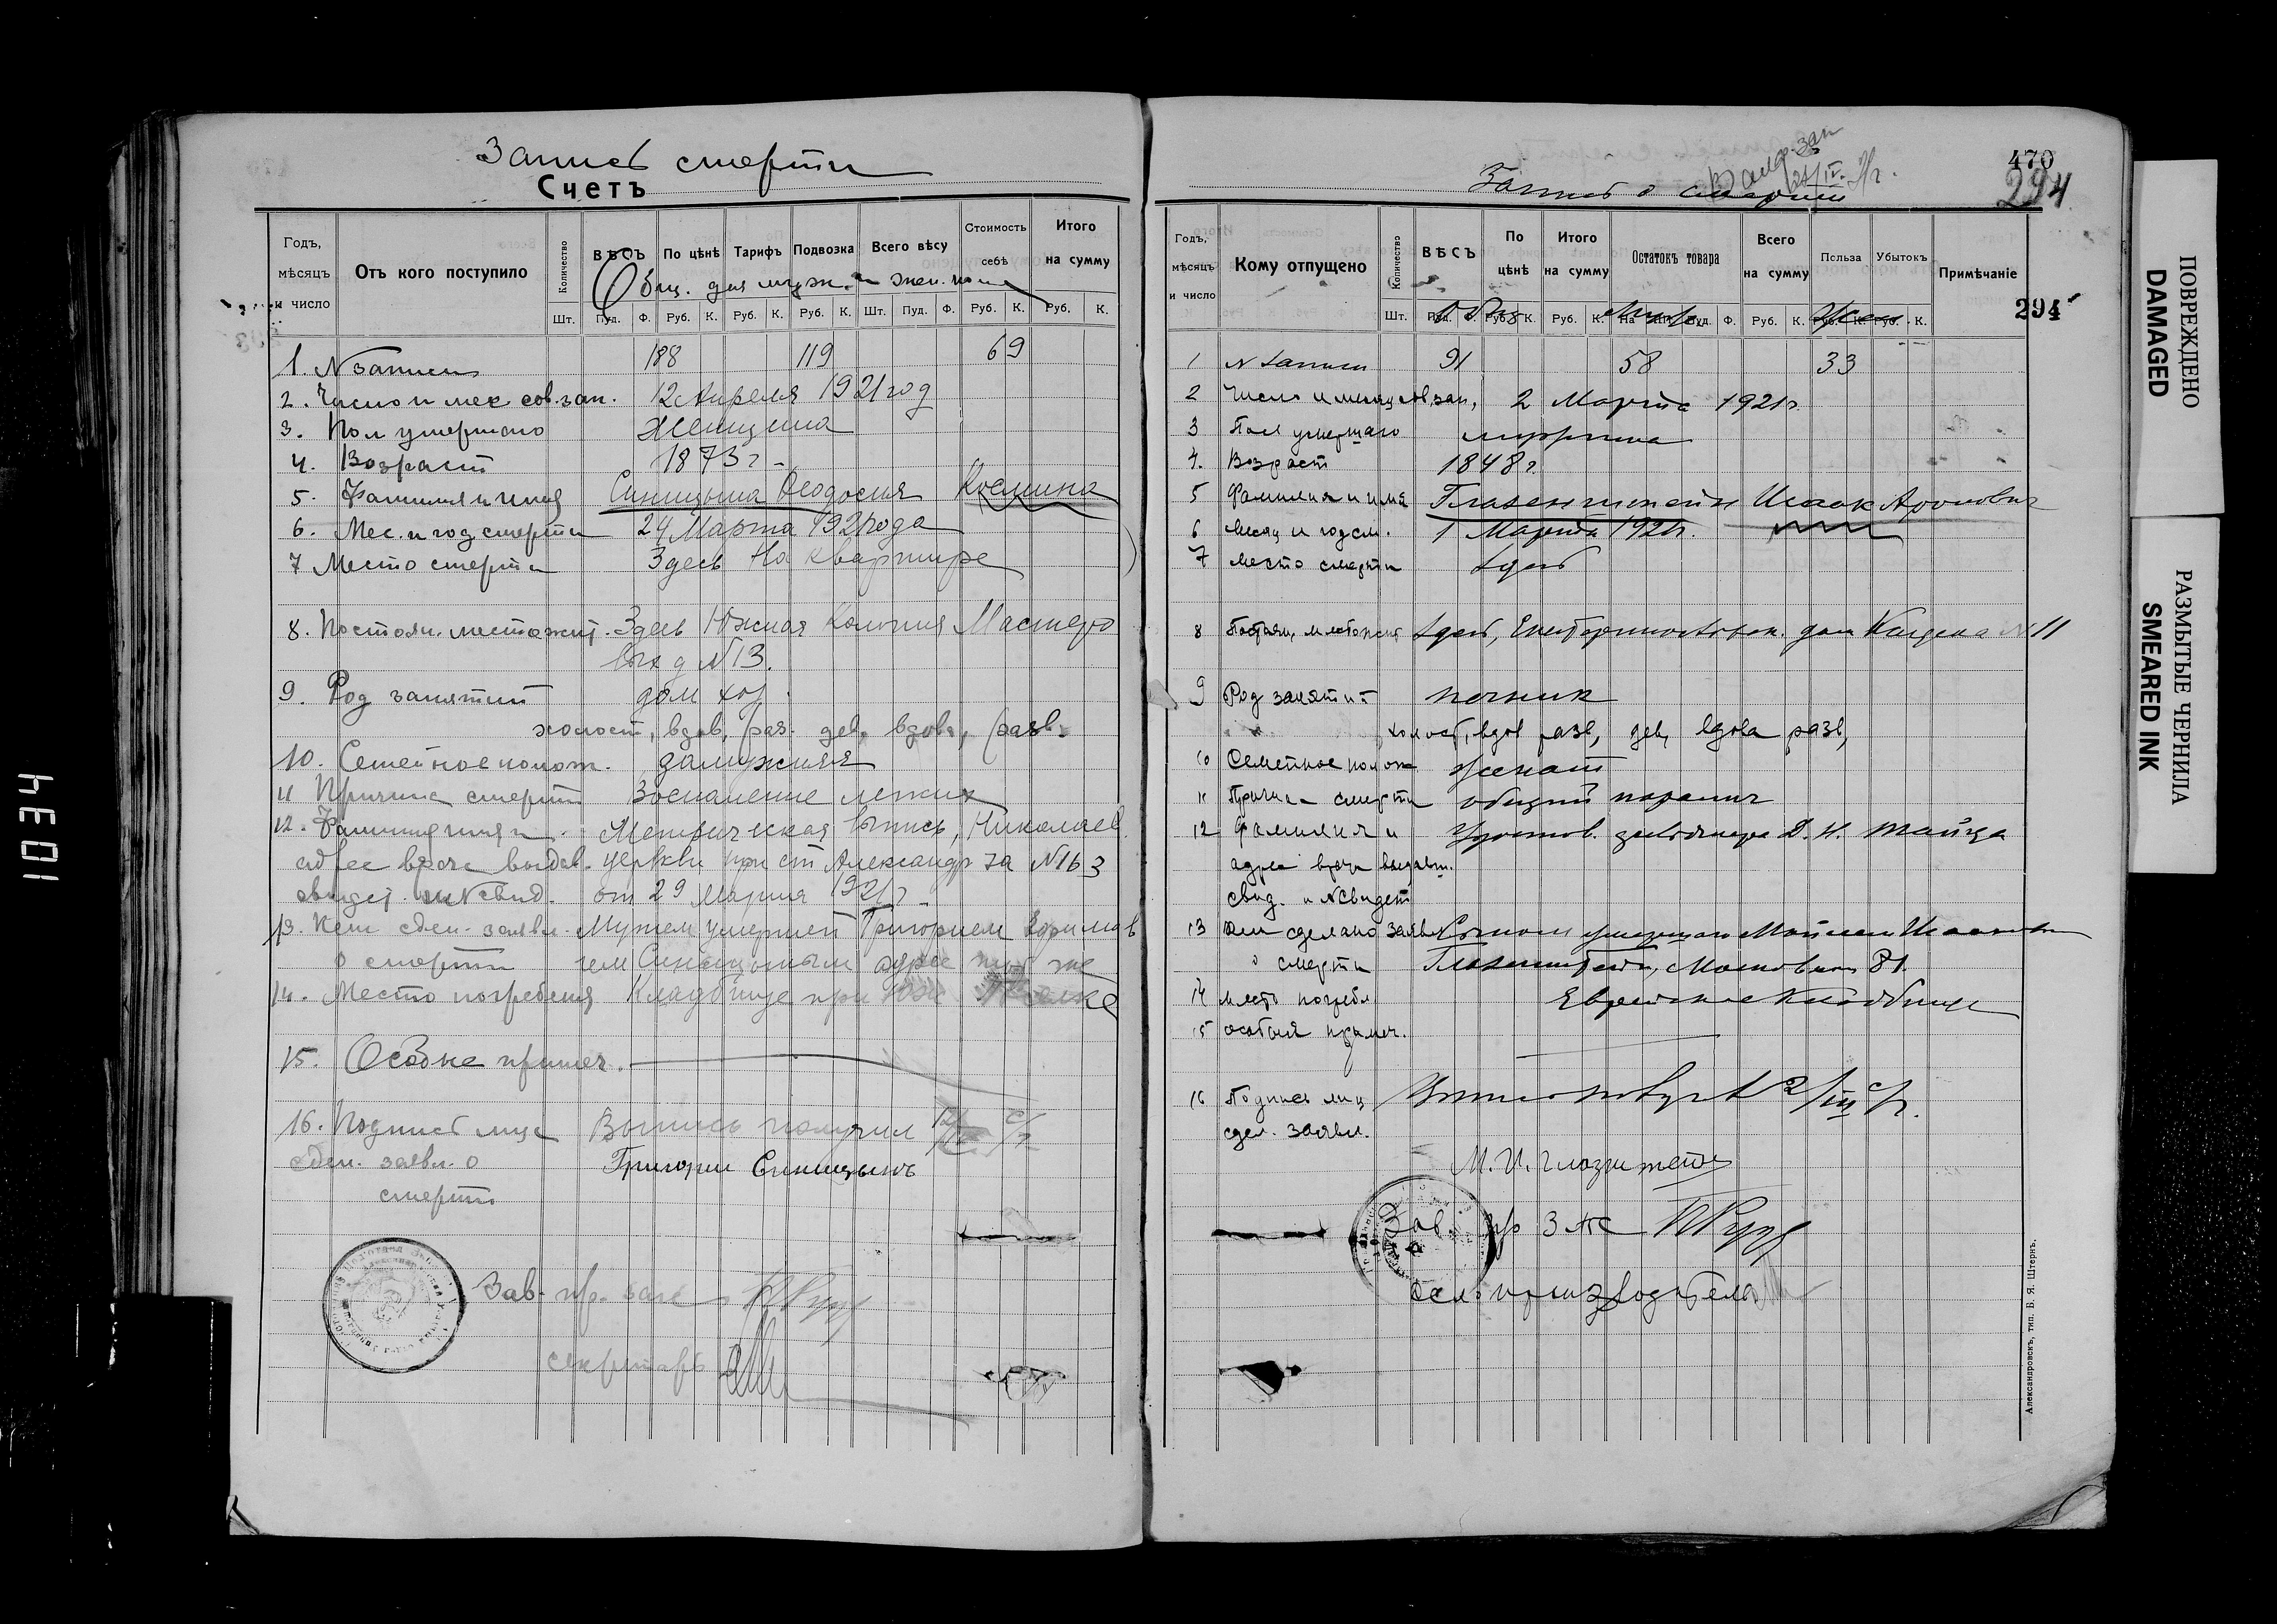 Запись смерти
Счетъ
Годъ, мѣсяцъ и число
Отъ кого поступило
Количество
ВѢСЪ
По цѣнѣ
Тарифъ
Подвозка
Всего вѣсу
Стоимость себѣ
Итого на сумму
Общ. для муж. и жен.
Шт. Пуд. Ф. Руб. К. Руб. К. Руб. К. Шт. Пуд. Ф. Руб. К. Руб. К.
1. N записи 188 119 69
2. Число и мес сов. зап. 12 Апреля 1921 год
3. Пол умершаго Женщина
4. Возраст 1873 г.
5. Фамилия и имя Синицына Феодосия Космина
6. Мес. и год смерти 24 Марта 1921 года
7 Место смерти Здесь На квартире
8. Постоян. местожит. Здесь Южная Колония Мастеро
вых д N 13.
9. Род занятий дом хоз.
холост, вдов, раз. дев, вдова, разв.
10. Семейное полож. замужняя
11 Причина смерти Воспаление легких
12. Фамилия имя и Метрическая выпись, Николаев.
адрес врача выдав. церкви при ст Александр за N 163
свидет. и N свид. от 29 Марта 1921 г.
13. Кем сдел. заявл. Мужем умершей Григорием
о смерти Синицыным адрес тот же
14. Место погребения Кладбище при
15. Особые примеч.
16. Подпись лица Выпись получил 12/
сдел. заявл. о Григорий Синицынъ
смерти
Зав. п/р. загс
секретарь
Запись о смерти
21/IV. 21 г.
470
294
Годъ, мѣсяцъ и число
Кому отпущено
Количество
ВѢСЪ
По цѣнѣ
Итого на сумму
Остатокъ товара
Всего на сумму
Польза
Убытокъ
Примѣчаніе
294
Шт. Пуд. Ф. Руб. К. Руб. К. На шт. Пуд. Ф. Руб. К. Руб. К. Руб. К.
1 N записи 91 58 33
2 Число и месяц сов зап, 2 Марта 1921 г.
3 Пол умершаго мужчина
4. Возраст 1848 г.
5 Фамилия и имя Глазенштейн Исаак Аронович
6 Месяц и год см. 1 Марта 1921 г.
7 место смерти здесь
8 Постоян, местожит здесь, Екатеринославск. дом N 11
9 Род занятий печник
холост, вдов разв, дев, вдова разв,
10 Семейное полож женат
11 Причина смерти общий паралич
12 Фамилия и Удостов. Д. Н. Тайца
адрес врача выдавш.
свид. и N свидет
13 Кем сделано заявл Сыном умершаго Мойсеем Исаакови
о смерти Глазенштейн, Московская 81.
14 место погребл Еврейское Кладбище
15 особыя примеч.
16 Подпись лиц 2/III с/г.
сдел. заявл.
М. И. Глазенштейн
Зав. п/р ЗАГС
Делопроизводитель
Александровскъ, тип. Б. Я. Штернъ.
ПОВРЕЖДЕНО
DAMAGED
РАЗМЫТЫЕ ЧЕРНИЛА
SMEARED INK
1034